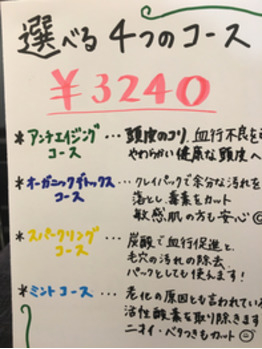 選べる4つのコース
¥3240
*アンチエイジングコース … 頭皮のコリ、血行不良を
やわらかい健康な頭皮へ
*オーガニックデトックスコース … クレイパックで余分な汚れを
落とし、毒素をカット
敏感肌の方も安心
*スパークリングコース … 炭酸で血行促進と、
毛穴の汚れの除去、
パックとしても使えます!
*ミントコース … 老化の原因とも言われている
活性酸素を取り除きます
ニオイ・ベタつきもカット